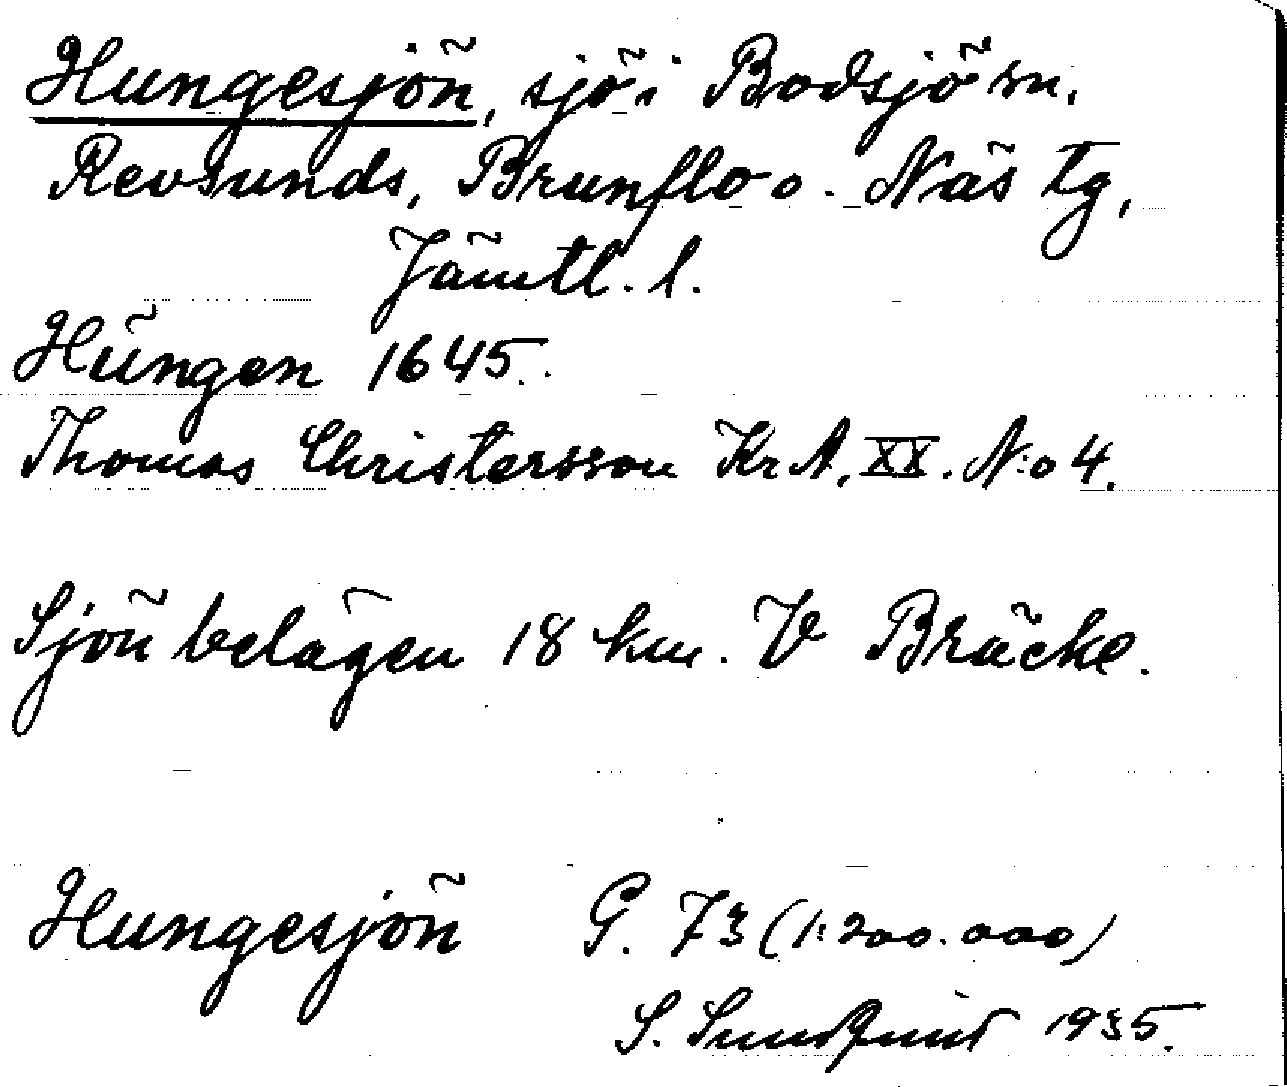 Hungesjön, sjö i Bodsjö sn,
Revsunds, Brunflo o. Näs tg,
Jämtl. l.
Hungen 1645.
Thomas Christersson Kr A. XX. N:o 4.
Sjön belägen 18 km. V Bräcke.
Hungesjön G. 73 (1:200.000)
S. Sundquist 1935.